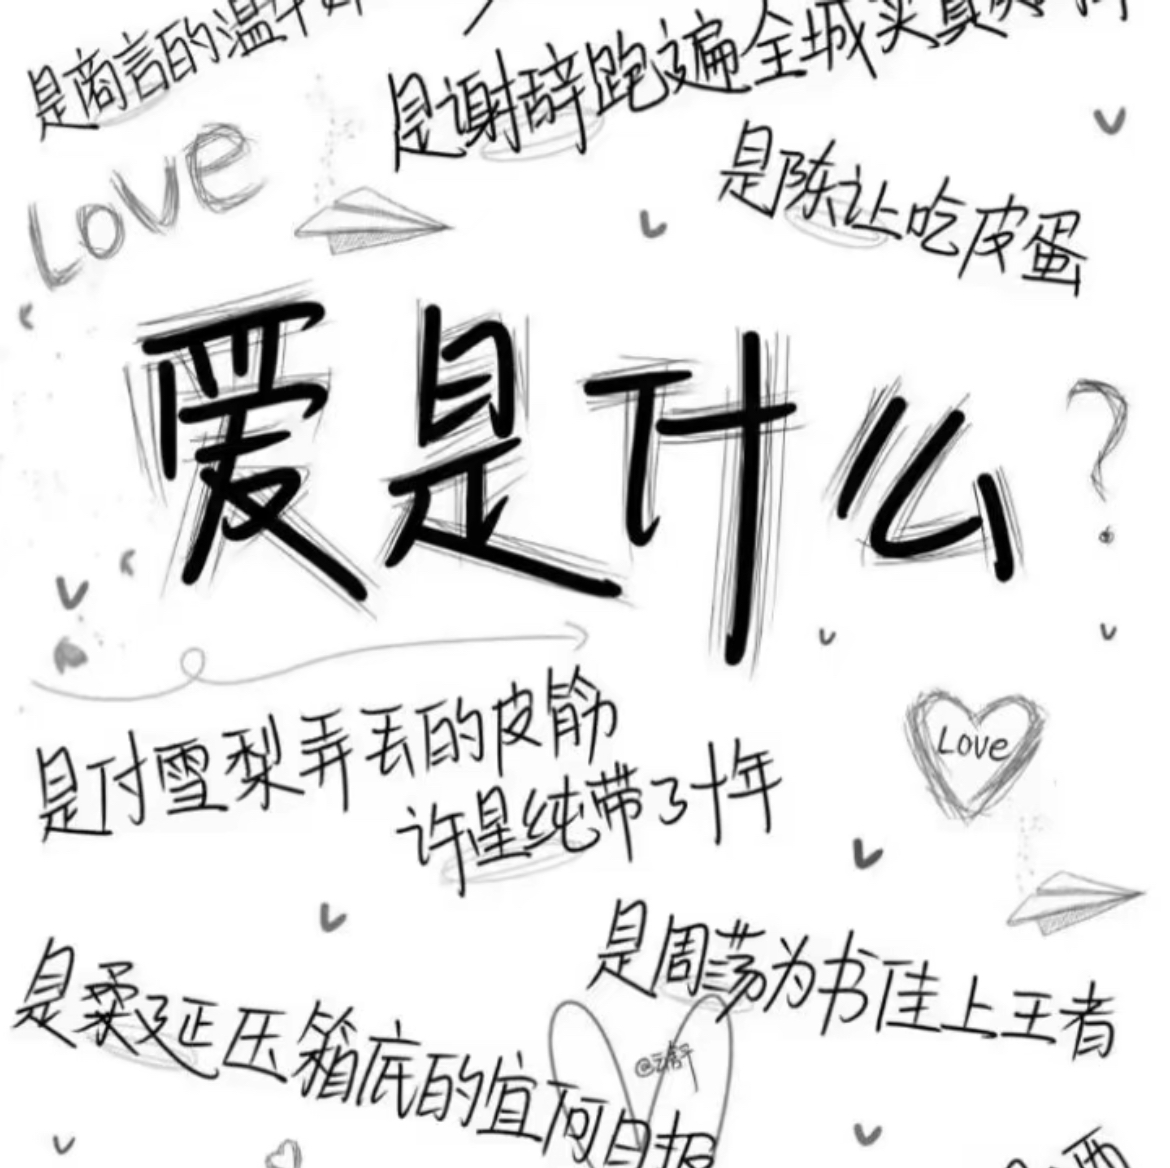 是商言的温牛奶
是谢辞跑遍全城买真
Love
是陈让吃皮蛋
爱是什么?
是付雪梨弄丢的皮筋
许星纯带了十年
Love
是周荡为书佳上王者
是柔延压箱底的宜何日报
@云舒
西